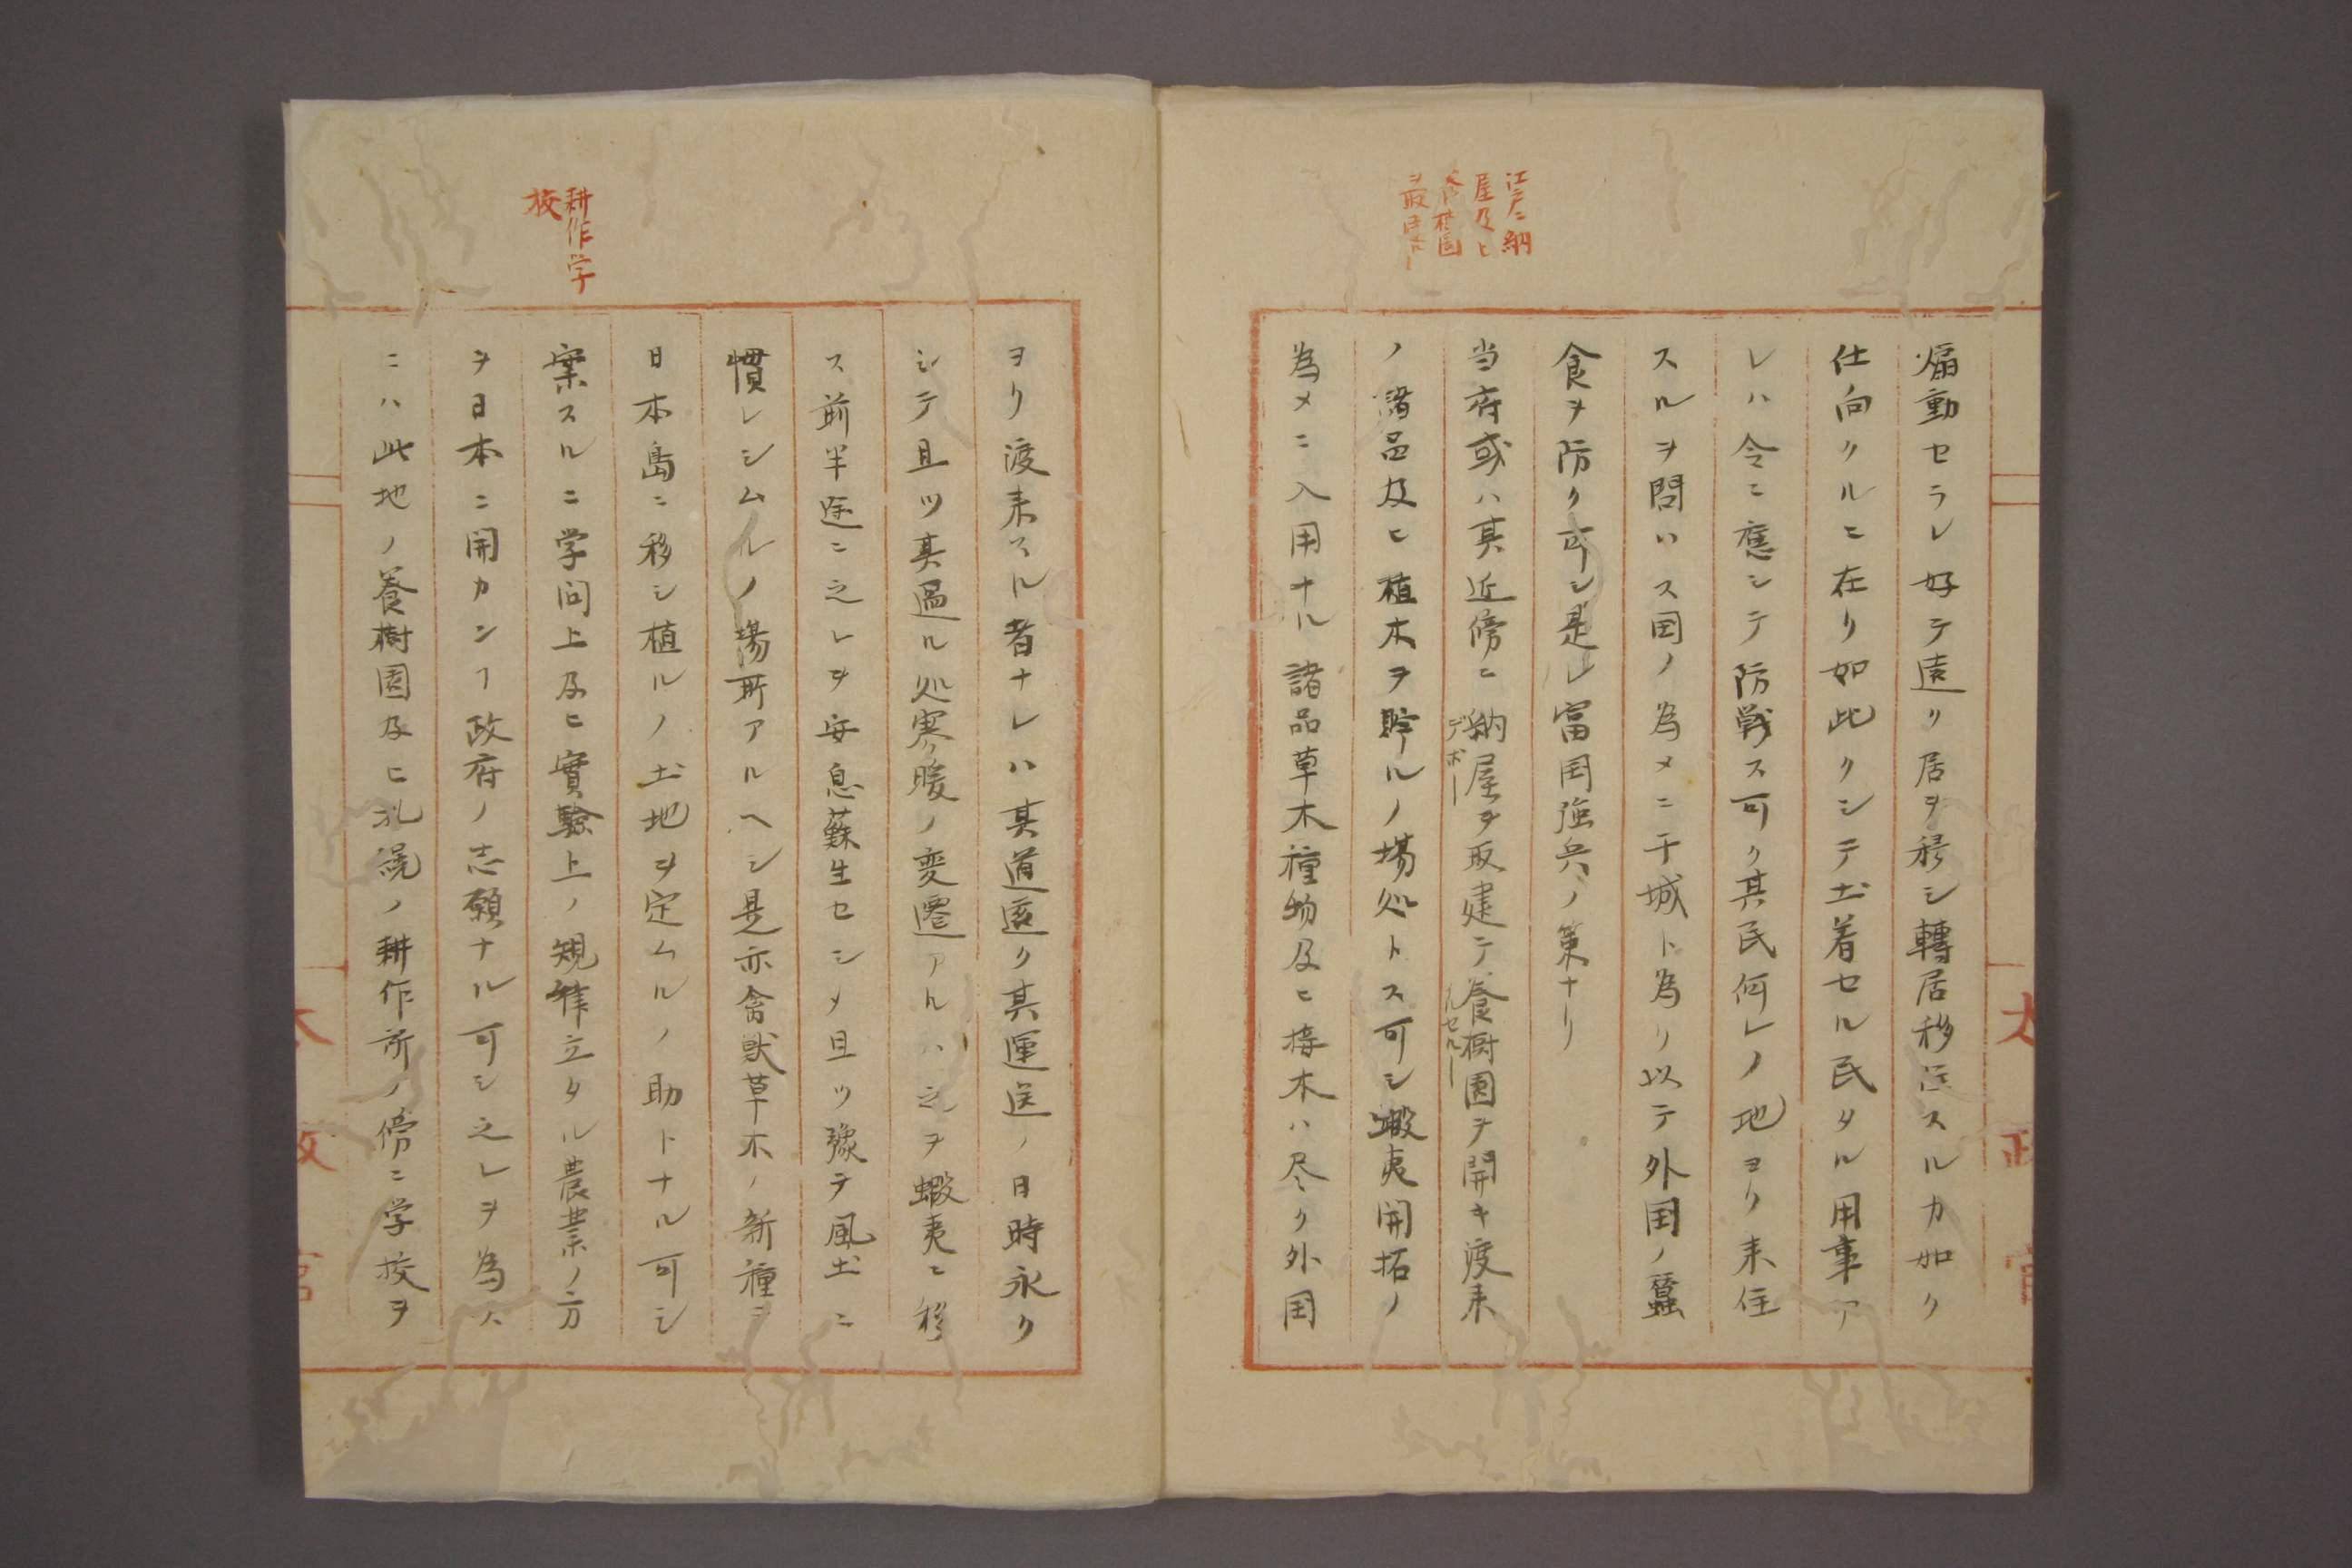 江戸ニ納
屋及ヒ
煽動セラレ好テ遠ク居ヲ移シ轉居移住スルカ如ク
仕向クルニ在リ如此クシテ土着セル民タル用事ア
レハ令ニ應シテ防戦ス可ク其民何レノ地ヨリ来住
スルヲ問ハス国ノ為メニ干城ト為リ以テ外国ノ蠶
食ヲ防ク可シ是レ富国強兵ノ策ナリ
当府或ハ其近傍ニ納屋ヲ取建テ養樹園ヲ開キ渡来
デポー
ノ諸品及ヒ植木ヲ貯ルノ場処トス可シ蝦夷開拓ノ
為メニ入用ナル諸品草木種物及ヒ接木ハ尽ク外国
太政官
耕作学
校
ヨリ渡来スル者ナレハ其道遠ク其運送ノ日時永ク
シテ且ツ其過ル処寒暖ノ変遷アルハ之ヲ蝦夷ニ移
ス前半途ニ之レヲ安息蘇生セシメ且ツ豫テ風土ニ
慣レシムルノ場所アルヘシ是亦禽獣草木ノ新種ヲ
日本島ニ移シ植ルノ土地ヲ定ムルノ助トナル可シ
案スルニ学問上及ヒ實驗上ノ規律立タル農業ノ方
ヲ日本ニ開カンヿ政府ノ志願ナル可シ之レヲ為ス
ニハ此地ノ養樹園及ヒ札幌ノ耕作所ノ傍ニ学校ヲ
太政官